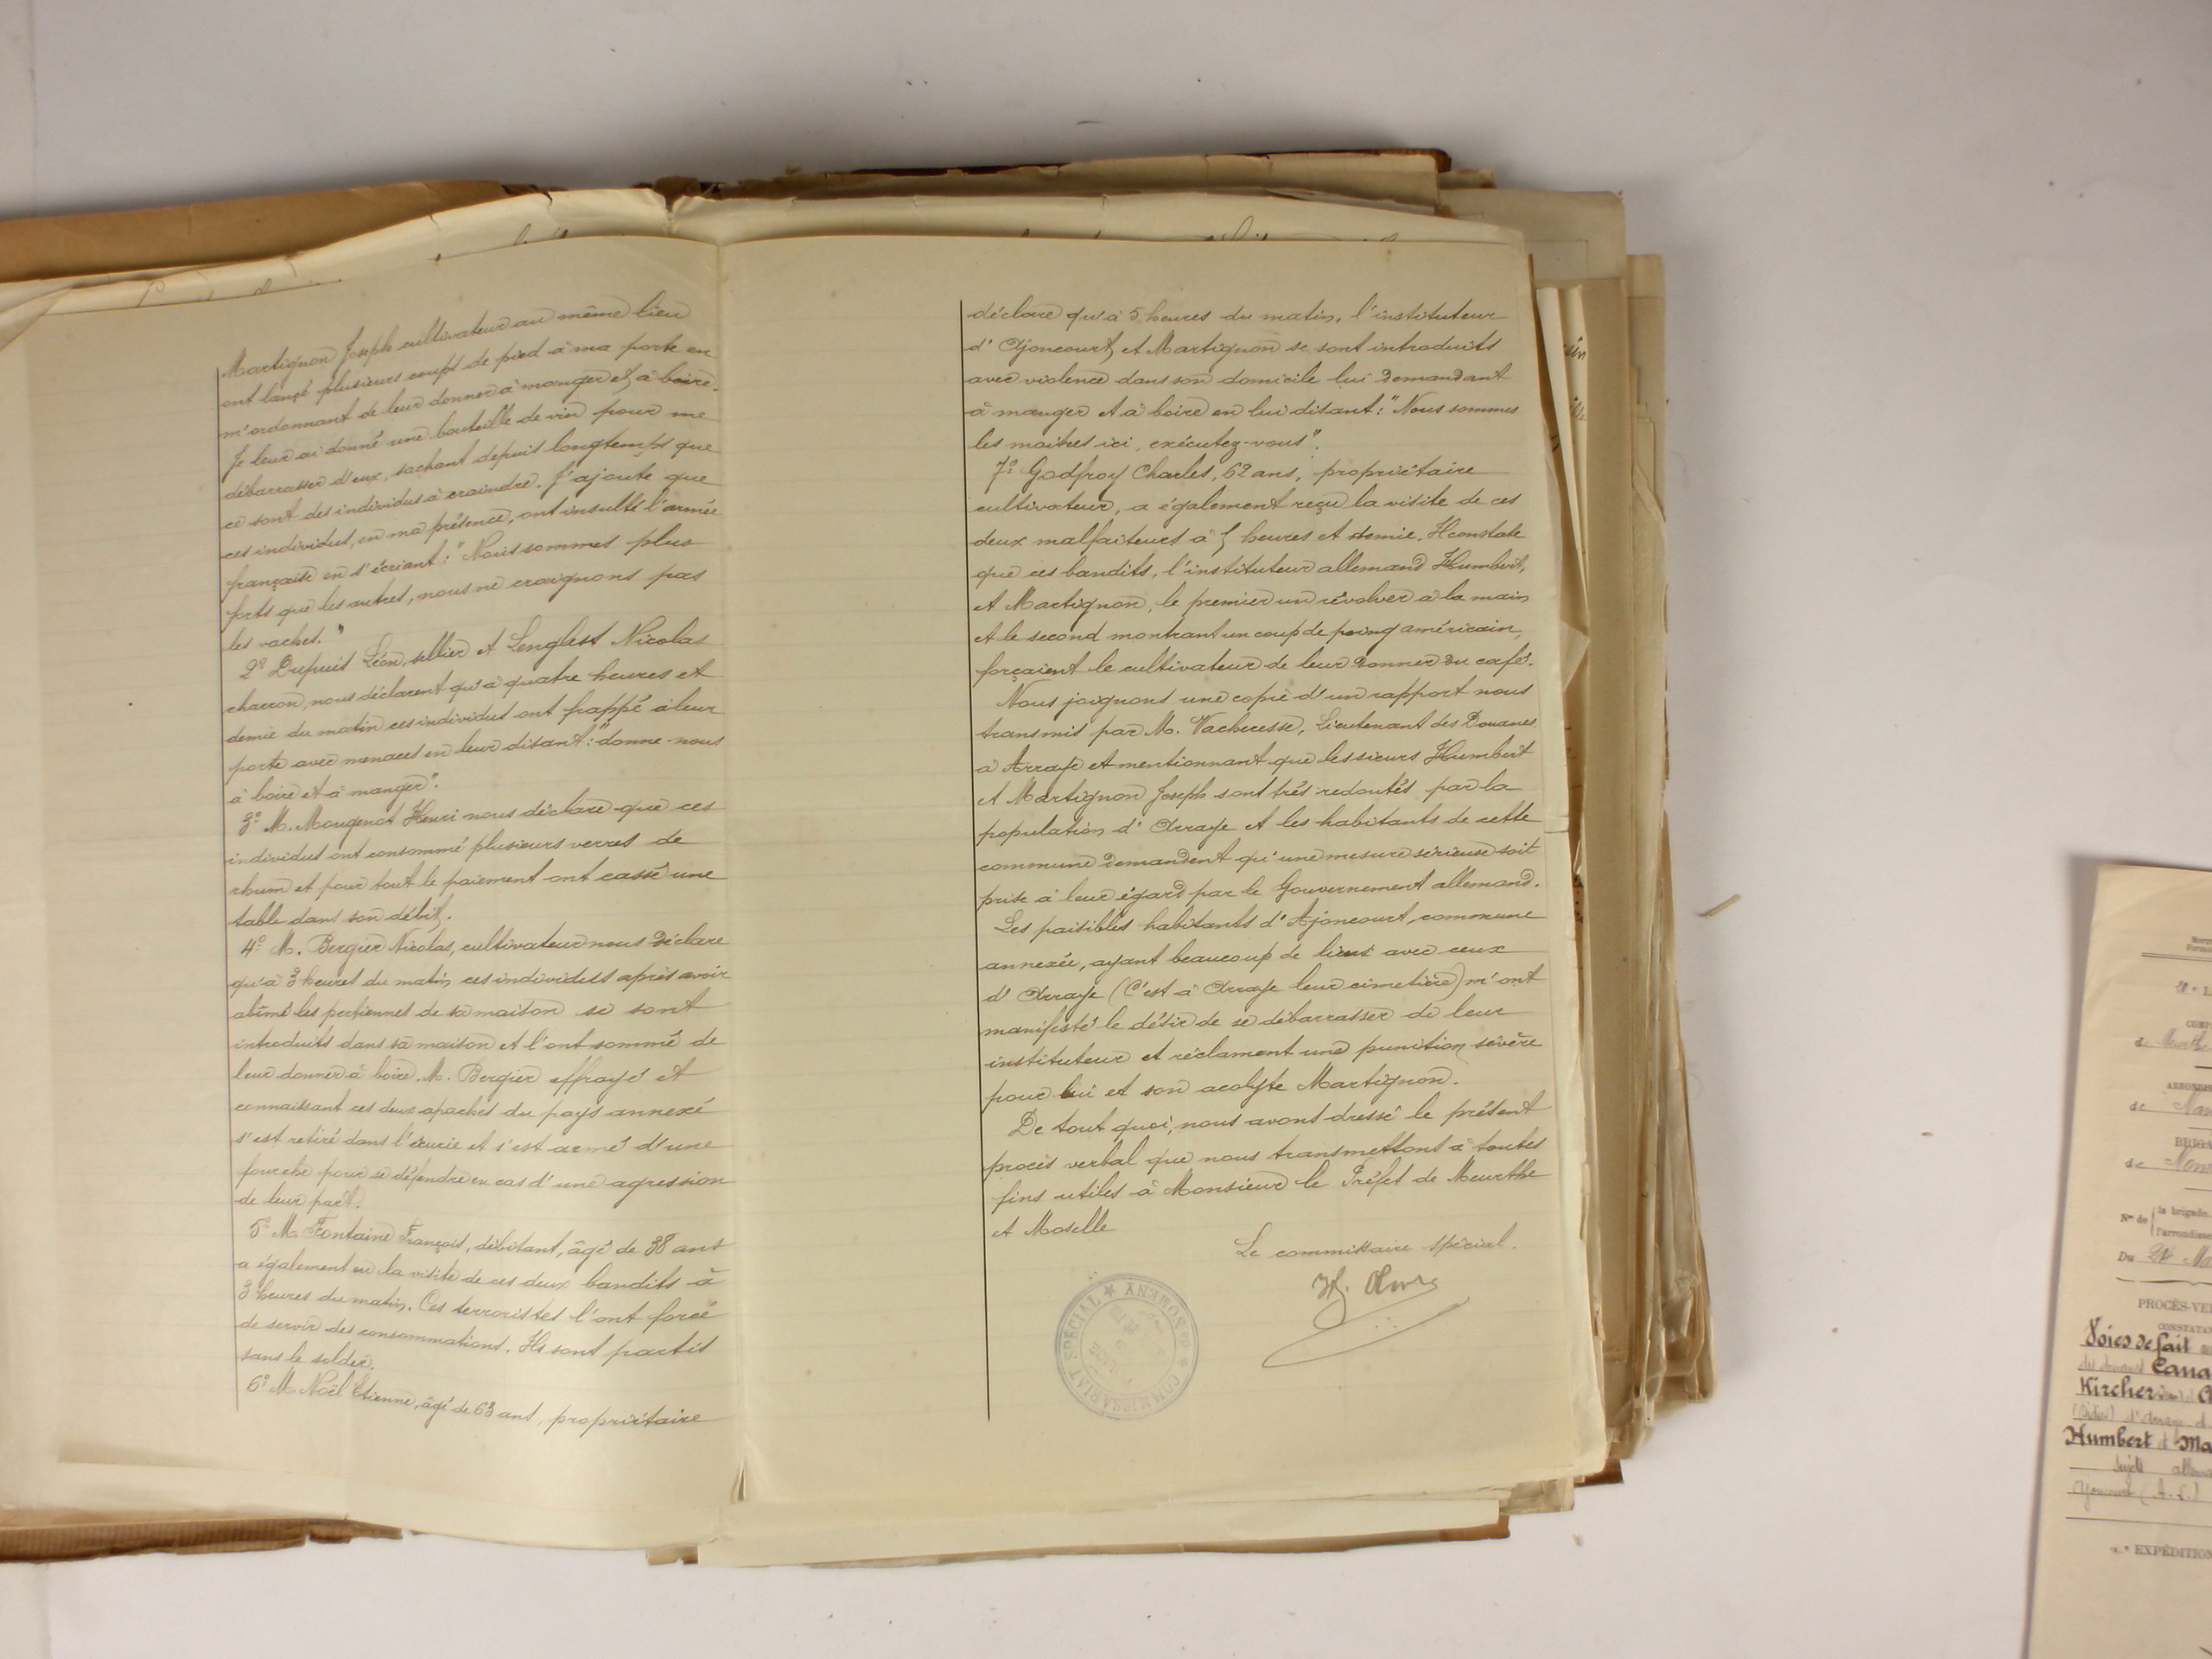 Martignon Joseph cultivateur au même lieu
ont lançé plusieurs coups de pied à ma porte en
m'ordonnant de leur donner à manger et à boire.
Je leur ai donné une bouteille de vin pour me
débarrasser d'eux, sachant depuis longtemps que
ce sont des individus à craindre. J'ajoute que
ces individus, en ma présence, ont insulté l'armée
française en s'écriant: "Nous sommes plus
forts que les autres, nous ne craignons pas
les vaches."
2º Dupuis Léon, sellier et Lenglest Nicolas
charron, nous déclarent qu'à quatre heures et
demie du matin ces individus ont frappé à leur
porte avec menaces en leur disant: "donne-nous
à boire et à manger".
3º M. Mougenot Henri nous déclare que ces
individus ont consommé plusieurs verres de
rhum et pour tout le paiement ont cassé une
table dans son débit.
4º M. Bergier Nicolas, cultivateur nous déclare
qu'à 3 heures du matin ces individus après avoir
abîmé les persiennes de sa maison se sont
introduits dans sa maison et l'ont sommé de
leur donner à boire. M. Bergier effrayé et
connaissant ces deux apaches du pays annexé
s'est retiré dans l'écurie et s'est armé d'une
fourche pour se défendre en cas d'une agression
de leur part.
5º M. Fontaine François, débitant, âgé de 38 ans
a également eu la visite de ces deux bandits à
3 heures du matin. Ces terroristes l'ont forcé
de servir des consommations. Ils sont partis
sans le solder.
6º M. Noël Etienne, âgé de 63 ans, propriétaire
déclare qu'à 5 heures du matin, l'instituteur
d'Ajoncourt et Martignon se sont introduits
avec violence dans son domicile lui demandant
à manger et à boire en lui disant: "Nous sommes
les maîtres ici, exécutez-vous".
7º Godfroy Charles, 62 ans, propriétaire
cultivateur, a également reçu la visite de ces
deux malfaiteurs à 5 heures et demie. Il constate
que ces bandits, l'instituteur allemand Humbert,
et Martignon, le premier un révolver à la main
et le second montrant un coup de poing américain,
forçaient le cultivateur de leur donner du café.
Nous joignons une copie d'un rapport nous
transmis par M. Vacheresse, Lieutenant des Douanes
à Arraye et mentionnant que les sieurs Humbert
et Martignon Joseph sont très redoutés par la
population d'Arraye et les habitants de cette
commune demandent qu'une mesure sérieuse soit
prise à leur égard par le Gouvernement allemand.
Les paisibles habitants d'Ajoncourt, commune
annexée, ayant beaucoup de liens avec ceux
d'Arraye (C'est à Arraye leur cimetière) m'ont
manifesté le désir de se débarrasser de leur
instituteur et réclament une punition sévère
pour lui et son acolyte Martignon.
De tout quoi, nous avons dressé le présent
procès verbal que nous transmettons à toutes
fins utiles à Monsieur le Préfet de Meurthe
et Moselle
Le commissaire spécial.
COMMISSARIAT SPÉCIAL ★ NOMENY ★
de
ARRONDISS
de
BRIGA
de
Nos de la brigade.
l'arrondisse
Du
PROCÈS-VER
CONSTATANT
Voies de fait
Kircher
Humbert et Ma
EXPÉDITION